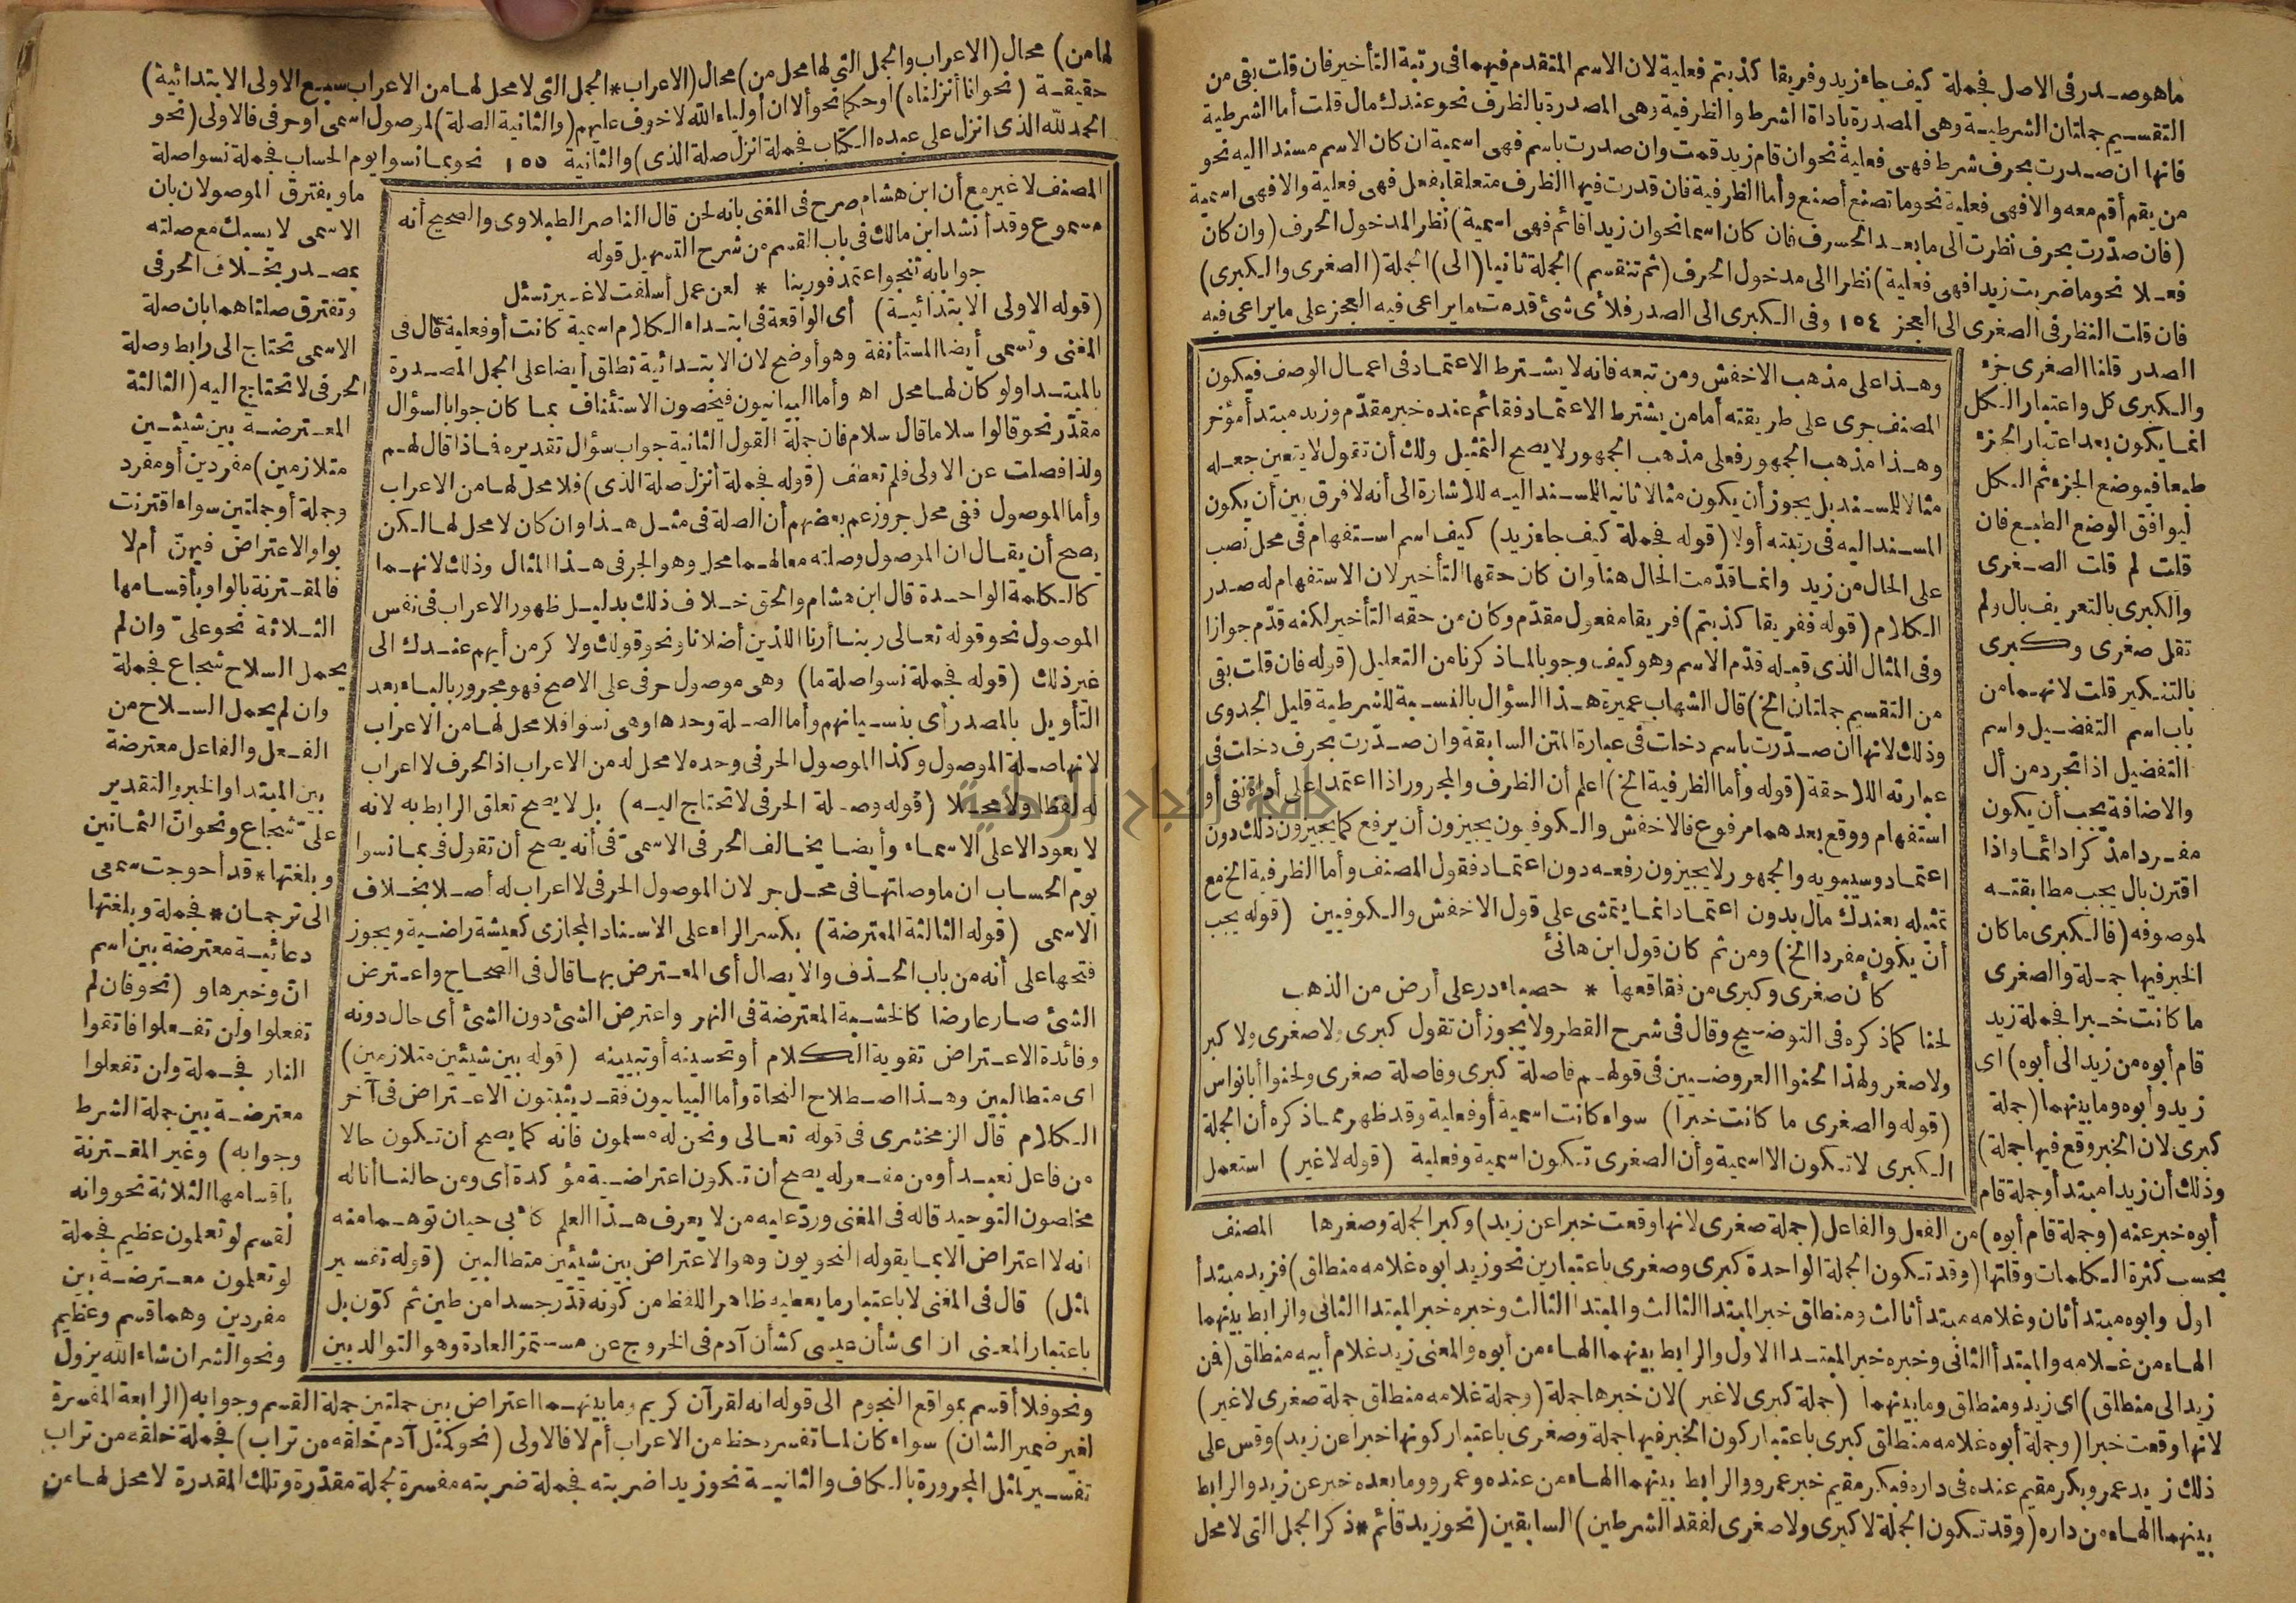 ما هو صدر فى الاصل فجملة كيف جاء زيد وفريقا كذبتم فعلية لان الاسم المتقدم فيهما فى رتبة التأخير فان قلت بقى من
التقسيم جملتان الشرطية وهى المصدرة باداة الشرط والظرفية وهى المصدرة بالظرف نحو عندك مال قلت أما الشرطية
فانها ان صدرت بحرف شرط فهى فعلية نحو ان قام زيد قمت وان صدرت باسم فهى اسمية ان كان الاسم مسندا اليه نحو
من يقم أقم معه والا فهى فعلية نحو ما تصنع أصنع وأما الظرفية فان قدرت فيها الظرف متعلقا بفعل فهى فعلية والا فهى اسمية
(فان صدّرت بحرف نظرت الى ما بعد الحرف فان كان اسما نحو ان زيدا قائم فهى اسمية) نظر المدخول الحرف (وان كان
فعلا نحو ما ضربت زيدا فهى فعلية) نظرا الى مدخول الحرف (ثم تنقسم) الجملة ثانيا (الى) الجملة (الصغرى والكبرى)
فان قلت النظر فى الصغرى الى العجز ١٥٤ وفى الكبرى الى الصدر فلأى شئ قدمت ما يراعى فيه العجز على ما يراعى فيه
الصدر قلنا الصغرى جزء
والكبرى كل واعتبار الكل
انما يكون بعد اعتبار الجزء
طبعا فيوضع الجزء ثم الكل
ليوافق الوضع الطبع فان
قلت لم قلت الصغرى
والكبرى بالتعريف بال ولم
تقل صغرى وكبرى
بالتنكير قلت لانهما من
باب اسم التفضيل واسم
التفضيل اذا تجرد من أل
والاضافة يجب أن يكون
مفردا مذكرا دائما واذا
اقترن بال يجب مطابقته
لموصوفه (فالكبرى ما كان
الخبر فيها جملة والصغرى
ما كانت خبرا فجملة زيد
قام أبوه من زيد الى أبوه) اى
زيد وأبوه وما بينهما (جملة
كبرى لان الخبر وقع فيها جملة)
وذلك أن زيدا مبتدأ وجملة قام
وهذا على مذهب الاخفش ومن تبعه فانه لا يشترط الاعتماد فى اعمال الوصف فيكون
المصنف جرى على طريقته أما من يشترط الاعتماد فقائم عنده خبر مقدّم وزيد مبتدأ مؤخر
وهذا مذهب الجمهور فعلى مذهب الجمهور لا يصح التمثيل ولك أن تقول لا يتعين جعله
مثالا للمسند بل يجوز أن يكون مثالا ثانيا للمسند اليه للاشارة الى أنه لا فرق بين أن يكون
المسند اليه فى رتبته أولا (قوله فجملة كيف جاء زيد) كيف اسم استفهام فى محل نصب
على الحال من زيد وانما قدّمت الحال هنا وان كان حقها التأخير لان الاستفهام له صدر
الكلام (قوله ففريقا كذبتم) فريقا مفعول مقدّم وكان من حقه التأخير لكنه قدّم جوازا
وفى المثال الذى قبله قدّم الاسم وهو كيف وجوبا لما ذكرنا من التعليل (قوله فان قلت بقى
من التقسيم جملتان الخ) قال الشهاب عميرة هذا السؤال بالنسبة للشرطية قليل الجدوى
وذلك لانها ان صدّرت باسم دخلت فى عبارة المتن السابقة وان صدّرت بحرف دخلت فى
عبارته اللاحقة (قوله وأما الظرفية الخ) اعلم أن الظرف والمجرور اذا اعتمدا على أداة نفى أو
استفهام ووقع بعدهما مرفوع فالاخفش والكوفيون يجيزون أن يرفع كما يجيزون ذلك دون
اعتماد وسيبويه والجمهور لا يجيزون رفعه دون اعتماد فقول المصنف وأما الظرفية الخ مع
تمثيله بعندك مال بدون اعتماد انما يتمشى على قول الاخفش والكوفيين (قوله يجب
أن يكون مفردا الخ) ومن ثم كان قول ابن هانئ
كأن صغرى وكبرى من فقاقعها * حصباء در على أرض من الذهب
لحنا كما ذكره فى التوضيح وقال فى شرح القطر ولا يجوز أن تقول كبرى ولا صغرى ولا كبر
ولا صغر ولهذا لحنوا العروضيين فى قولهم فاصلة كبرى وفاصلة صغرى ولحنوا أبا نواس
(قوله والصغرى ما كانت خبرا) سواء كانت اسمية أو فعلية وقد ظهر مما ذكره أن الجملة
الكبرى لا تكون الا اسمية وأن الصغرى تكون اسمية وفعلية (قوله لا غير) استعمل
أبوه خبر عنه (وجملة قام أبوه) من الفعل والفاعل (جملة صغرى لانها وقعت خبرا عن زيد) وكبر الجملة وصغرها المصنف
بحسب كثرة الكلمات وقلتها (وقد تكون الجملة الواحدة كبرى وصغرى باعتبارين نحو زيد ابوه غلامه منطلق) فزيد مبتدأ
اول وابوه مبتدأ ثان وغلامه مبتدأ ثالث ومنطلق خبر المبتدا الثالث والمبتدا الثالث وخبره خبر المبتدا الثانى والرابط بينهما
الهاء من غلامه والمبتدأ الثانى وخبره خبر المبتدا الاول والرابط بينهما الهاء من أبوه والمعنى زيد غلام أبيه منطلق (فمن
زيد الى منطلق) اى زيد ومنطلق وما بينهما (جملة كبرى لا غير) لان خبرها جملة (وجملة غلامه منطلق جملة صغرى لا غير)
لانها وقعت خبرا (وجملة أبوه غلامه منطلق كبرى باعتبار كون الخبر فيها جملة وصغرى باعتبار كونها خبرا عن زيد) وقس على
ذلك زيد عمرو بكر مقيم عنده فى داره فبكر مقيم خبر عمرو والرابط بينهما الهاء من عنده وعمرو وما بعده خبر عن زيد والرابط
بينهما الهاء من داره (وقد تكون الجملة لا كبرى ولا صغرى لفقد الشرطين) السابقين (نحو زيد قائم * ذكر الجمل التى لا محل
لها من) محال (الاعراب والجمل التى لها محل من) محال (الاعراب * الجمل التى لا محل لها من الاعراب سبع الاولى الابتدائية)
حقيقة (نحو انا أنزلناه) أو حكما نحو ألا ان أولياء الله لا خوف عليهم (والثانية الصلة) لموصول اسمى أو حرفى فالاولى (نحو
الحمد لله الذى انزل على عبده الكتاب فجملة انزل صلة الذى) والثانية ١٥٥ نحو بما نسوا يوم الحساب فجملة نسوا صلة
ما ويفترق الموصولان بان
الاسمى لا يسبك مع صلته
بمصدر بخلاف الحرفى
وتفترق صلتاهما بان صلة
الاسمى تحتاج الى رابط وصلة
الحرفى لا تحتاج اليه (الثالثة
المعترضة بين شيئين
متلازمين) مفردين أو مفرد
وجملة أو جملتين سواء اقترنت
بواو الاعتراض فيهن أم لا
فالمقترنة بالواو بأقسامها
الثلاثة نحو علىّ وان لم
يحمل السلاح شجاع فجملة
وان لم يحمل السلاح من
الفعل والفاعل معترضة
بين المبتدا والخبر والتقدير
علىّ شجاع ونحو ان الثمانين
وبلغتها * قد أحوجت سمعى
الى ترجمان * فجملة وبلغتها
دعائية معترضة بين اسم
ان وخبرها و (نحو فان لم
تفعلوا ولن تفعلوا فاتقوا
النار فجملة ولن تفعلوا
معترضة بين جملة الشرط
وجوابه) وغير المقترنة
باقسامها الثلاثة نحو وانه
لقسم لو تعلمون عظيم فجملة
لو تعلمون معترضة بين
مفردين وهما قسم وعظيم
ونحو الشر ان شاء الله يزول
المصنف لا غير مع أن ابن هشام صرح فى المغنى بانه لحن قال الناصر الطبلاوى والصحيح أنه
مسموع وقد أنشد ابن مالك فى باب القسم من شرح التسهيل قوله
جوابا به تنجو اعتمد فوربنا * لعن عمل أسلفت لا غير تسئل
(قوله الاولى الابتدائية) أى الواقعة فى ابتداء الكلام اسمية كانت أو فعلية قال فى
المغنى وتسمى أيضا المستأنفة وهو أوضح لان الابتدائية تطلق أيضا على الجمل المصدرة
بالمبتدا ولو كان لها محل اه وأما البيانيون فيخصون الاستئناف بما كان جوابا لسؤال
مقدّر نحو قالوا سلاما قال سلام فان جملة القول الثانية جواب سؤال تقديره فماذا قال لهم
ولذا فصلت عن الاولى فلم تعطف (قوله فجملة أنزل صلة الذى) فلا محل لها من الاعراب
وأما الموصول ففى محل جر وزعم بعضهم أن الصلة فى مثل هذا وان كان لا محل لها لكن
يصح أن يقال ان الموصول وصلته معا لهما محل وهو الجر فى هذا المثال وذلك لانهما
كالكلمة الواحدة قال ابن هشام والحق خلاف ذلك بدليل ظهور الاعراب فى نفس
الموصول نحو قوله تعالى ربنا أرنا اللذين أضلانا ونحو قولك ولا كرمن أيهم عندك الى
غير ذلك (قوله فجملة نسوا صلة ما) وهى موصول حرفى على الاصح فهو مجرور بالباء بعد
التأويل بالمصدر أى بنسيانهم وأما الصلة وحدها وهى نسوا فلا محل لها من الاعراب
لانها صلة الموصول وكذا الموصول الحرفى وحده لا محل له من الاعراب اذ الحرف لا اعراب
له لفظا ولا محلا (قوله وصلة الحرفى لا تحتاج اليه) بل لا يصح تعلق الرابط به لانه
لا يعود الا على الاسماء وأيضا يخالف الحرفى الاسمىّ فى أنه يصح أن تقول فى بما نسوا
يوم الحساب ان ما وصلتها فى محل جر لان الموصول الحرفى لا اعراب له أصلا بخلاف
الاسمى (قوله الثالثة المعترضة) بكسر الراء على الاسناد المجازى كعيشة راضية ويجوز
فتحها على أنه من باب الحذف والايصال أى المعترض بها قال فى الصحاح واعترض
الشئ صار عارضا كالخشبة المعترضة فى النهر واعترض الشئ دون الشئ أى حال دونه
وفائدة الاعتراض تقوية الكلام أو تحسينه أو تبيينه (قوله بين شيئين متلازمين)
اى متطالبين وهذا اصطلاح النحاة وأما البيانيون فقد يثبتون الاعتراض فى آخر
الكلام قال الزمخشرى فى قوله تعالى ونحن له مسلمون فانه كما يصح أن تكون حالا
من فاعل نعبد أو من مفعوله يصح أن تكون اعتراضية مؤكدة أى ومن حالنا أنا له
مخلصون التوحيد قاله فى المغنى وردّ عليه من لا يعرف هذا العلم كأبى حيان توهما منه
انه لا اعتراض الا بما يقوله النحويون وهو الاعتراض بين شيئين متطالبين (قوله تفسير
لمثل) قال فى المغنى لا باعتبار ما يعطيه ظاهر اللفظ من كونه قدّر جسدا من طين ثم كوّن بل
باعتبار المعنى اذ اى شأن عيسى كشأن آدم فى الخروج عن مستمرّ العادة وهو التوالد بين
ونحو فلا أقسم بمواقع النجوم الى قوله انه لقرآن كريم وما بينهما اعتراض بين جملتين جملة القسم وجوابه (الرابعة المفسرة
لغير ضمير الشان) سواء كان لما تفسره حظ من الاعراب أم لا فالاولى (نحو كمثل آدم خلقه من تراب) فجملة خلقه من تراب
تفسير لمثل المجرورة بالكاف والثانية نحو زيدا ضربته فجملة ضربته مفسرة لجملة مقدّرة وتلك المقدرة لا محل لها من